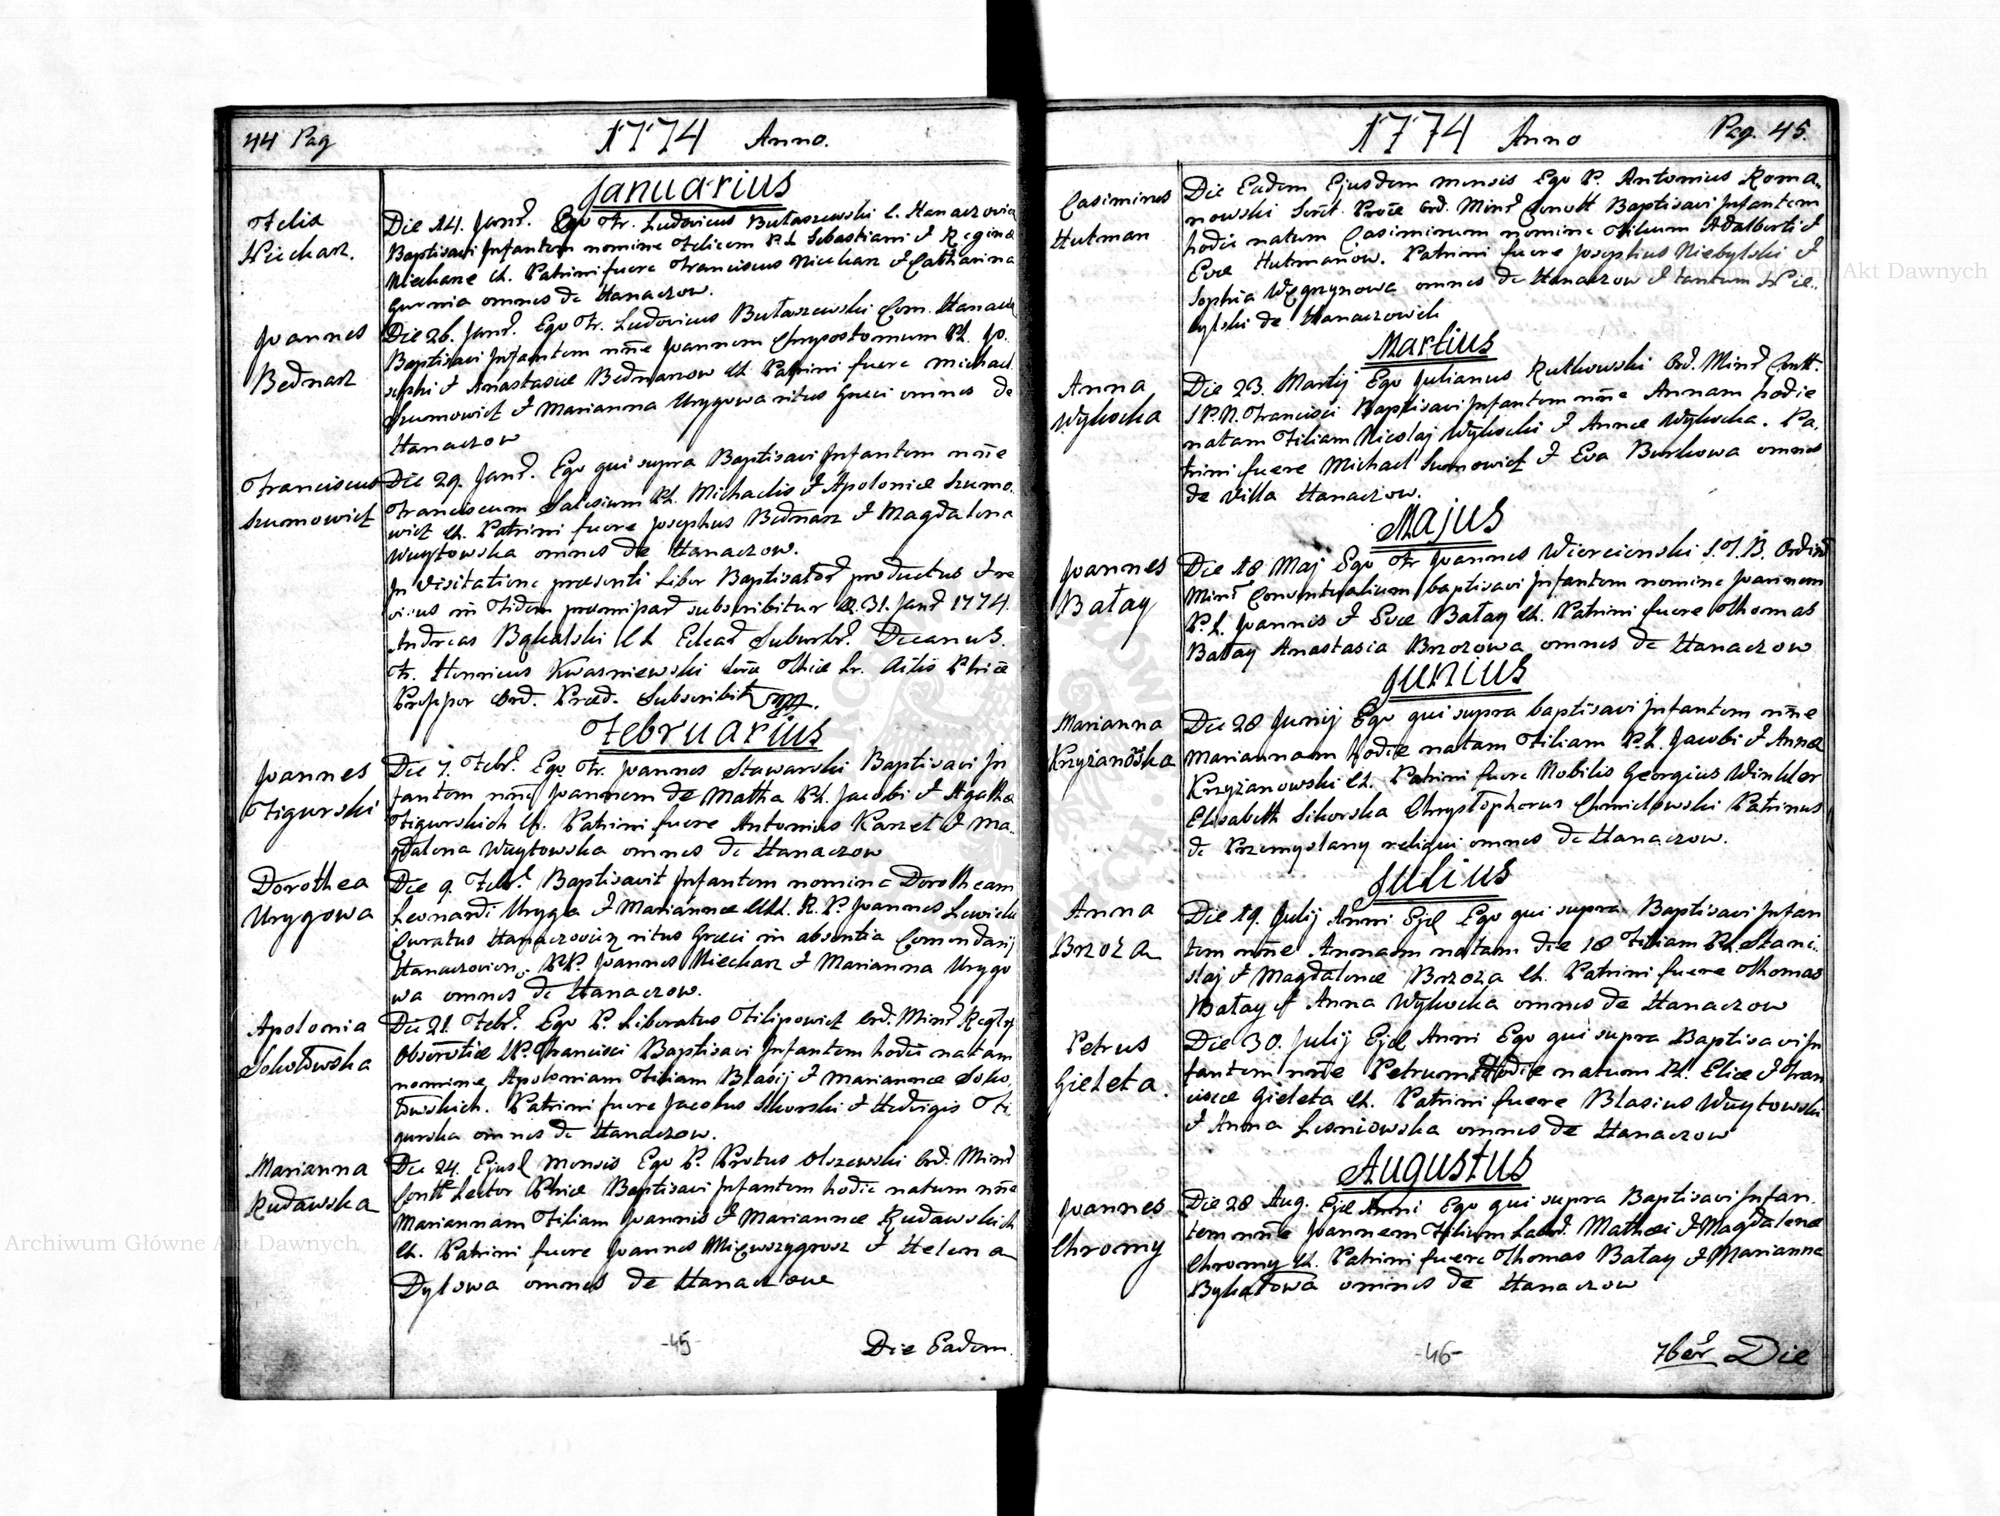 44 Pag
1774 Anno.
Januarius
Felix
Niechaz.
Die 14. Janr. Ego Fr. Ludovicus Butaszewski C. Hanaczovien
Baptisavi Infantem nomine Felicem P. L. Sebastiani & Reginæ
Niechaze CL. Patrini fuere Franciscus Niechaz & Catharina
omnes de Hanaczow.
Joannes
Bednarz
Die 26. Janr. Ego Fr. Ludovicus Butaszewski Com. Hanacz
Baptisavi Infantem nñe Joannem Chrysostomum PL. Jo.
sephi & Anastasiæ Bednarzow CL Patrini fuere Michael
Szumowicz & Marianna Urygowa ritus Græci omnes de
Hanaczow
Franciscus
Szumowicz
Die 29. Janr. Ego qui supra Baptisavi Infantem nñe
Franciscum Salesium PL. Michaelis & Apoloniæ Szumo.
wicz CL. Patrini fuere Josephus Bednarz & Magdalena
Wuytowska omnes de Hanaczow.
In Visitatione præsenti Liber Baptisator productus & re
visus in Fidem præmissor subscribitur D. 31. Janr 1774.
Andreas Bąkalski Decanus.
Fr. Henricus Kwasniewski
Ord. Præd. Subscribit
Februarius
Joannes
Figurski
Die 7. Febr. Ego Fr. Joannes Stawarski Baptisavi In
fantem nñe Joannem de Matha PL. Jacobi & Agathæ
Figurskich CL. Patrini fuere Antonius Karzet & Ma.
gdalena Wuytowska omnes de Hanaczow
Dorothea
Urygowa
Die 9. Febr. Baptisavit Infantem nomine Dorotheam
Leonardi Uryga & Mariannæ CLL. R. P. Joannes Lewicki
Curatus Hanaczovien ritus Græci in absentia Comendarij
Hanaczovien. PP. Joannes Niechaz & Marianna Urygo
wa omnes de Hanaczow.
Apolonia
Sokołowska
Die 21. Febr. Ego P. Liboratus Filipowicz Ord. Minr Regly
Observtiæ SP. Francisci Baptisavi Infantem hodie natam
nomine, Apoloniam Filiam Blasij & Mariannæ Soko.
łowskich. Patrini fuere Jacobus Sikorski & Hedvigis Fi.
gurska omnes de Hanaczow.
Marianna
Rudawska
Die 24. Ejusd Mensis Ego P. Protus Olszewski Ord. Minr
Contt Lector Phiæ Baptisavi Infantem hodie natum nñe
Mariannam Filiam Joannis & Mariannæ Rudawskich
CL. Patrini fuere Joannes & Helena
Dylowa omnes de Hanaczow
-45-
Die Eadem.
1774 Anno
Pag. 45.
Casimirus
Hutman
Die Eadem Ejusdem mensis Ego P. Antonius Roma.
nowski Ord. Minr Conott Baptisavi Infantem
hodie natum Casimirum nomine Filium Adalberti &
Evæ Hutmanow. Patrini fuere Josephus Niebylski &
Sophia Węgrzynowa omnes de Hanaczow & tantum Nie.
bylski de Hanaczowek
Martius
Anna
Wysocka
Die 23. Martij Ego Julianus Rutkowski Ord. Minr Contt.
S P. N. Francisci Baptisavi Infantem nñe Annam hodie
natam Filiam Nicolaj Wysocki & Annæ Wysocka. Pa.
trini fuere Michael Sumowicz & Eva Burkowa omnes
de Villa Hanaczow.
Majus
Joannes
Batay
Die 18 Maj Ego Fr Joannes Wiercienski S. T. B. Ordin
Minr Conventualium baptisavi Infantem nomine Joannem
P. L. Joannis & Evæ Batay CL. Patrini fuere Thomas
Batay Anastasia Brzozowa omnes de Hanaczow
Junius
Marianna
Krzyżanowska
Die 28 Junij Ego qui supra baptisavi Infantem nñe
Mariannam hodie natam Filiam P. L. Jacobi & Annæ
Krzyżanowski CL. Patrini fuere Nobilis Georgius Winkler
Elisabeth Sikorska Chrystophorus Chmielowski Patrinus
de Przemyslany reliqui omnes de Hanaczow.
Julius
Anna
Brzoza
Die 19. Julij Anni Ejd Ego qui supra Baptisavi Infan
tem nñe Annam natam die 18 Filiam PL Stani.
slaj & Magdalenæ Brzoza CL. Patrini fuere Thomas
Batay & Anna Wysocka omnes de Hanaczow
Petrus
Gieleta.
Die 30. Julij Ejd Anni Ego qui supra Baptisavi In
fantem nñe Petrum Hodie natum PL. Eliæ & Fran
ciscæ Gieleta CL. Patrini fuere Blasius Wuytowski
& Anna Lesniowska omnes de Hanaczow
Augustus
Joannes
Chromy
Die 28 Aug. Ejd Anni Ego qui supra Baptisavi Infan.
tem nñe Joannem Filium Labor. Mathæi & Magdalenæ
Chromy CL. Patrini fuere Thomas Batay & Marianna
omnes de Hanaczow
-46-
7ber Die
Archiwum Główne Akt Dawnych
Archiwum Główne Akt Dawnych